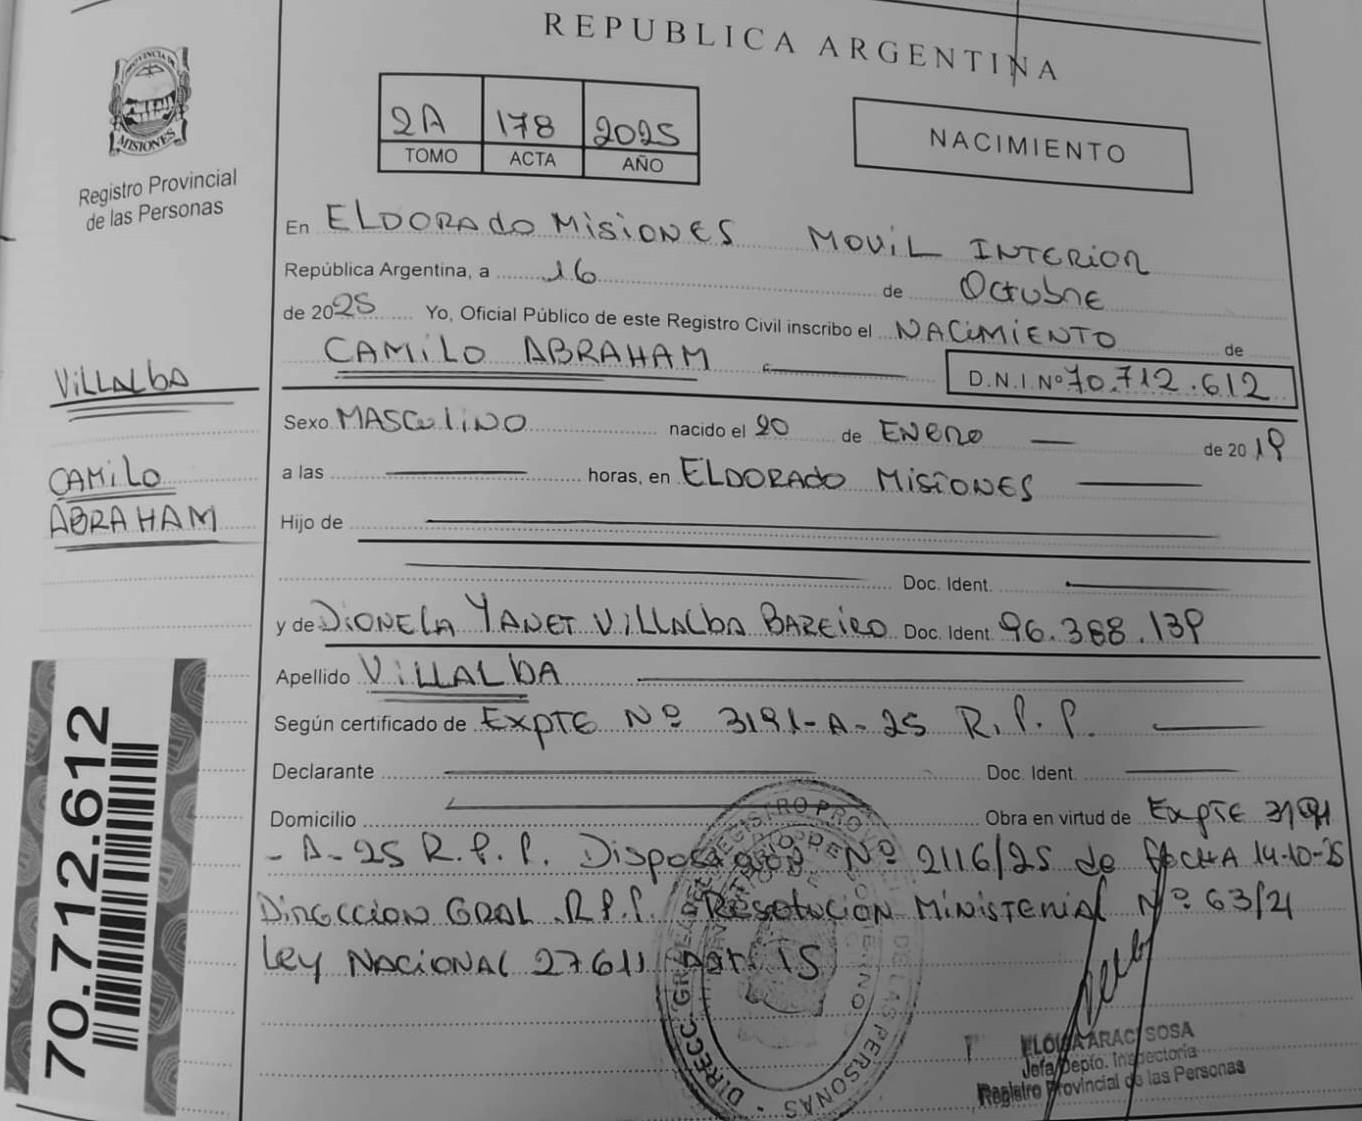 REPUBLICA ARGENTINA
PROVINCIA DE
MISIONES
Registro Provincial
de las Personas
2A 178 2025
TOMO ACTA AÑO
NACIMIENTO
En ELDORADO MISIONES MOVIL INTERIOR
República Argentina, a 16 de Octubre
de 2025 Yo, Oficial Público de este Registro Civil inscribo el NACIMIENTO de
CAMILO ABRAHAM D.N.I. Nº 70.712.612
VILLALBA
CAMILO
ABRAHAM
Sexo MASCULINO nacido el 20 de ENERO de 2019
a las horas, en ELDORADO MISIONES
Hijo de
Doc. Ident.
y de DIONELA YANET VILLALBA BAREIRO Doc. Ident. 96.388.139
Apellido VILLALBA
Según certificado de EXPTE Nº 3191-A-25 R.P.P.
Declarante Doc. Ident.
Domicilio Obra en virtud de EXPTE 3191
-A-25 R.P.P. Disposicion Nº 2116/25 de FECHA 14-10-25
DIRECCION GRAL R.P.P. RESOLUCION MINISTERIAL Nº 63/21
Ley NACIONAL 27611 Art 15
70.712.612
Jefa Depto. Inspectoria
Registro Provincial de las Personas